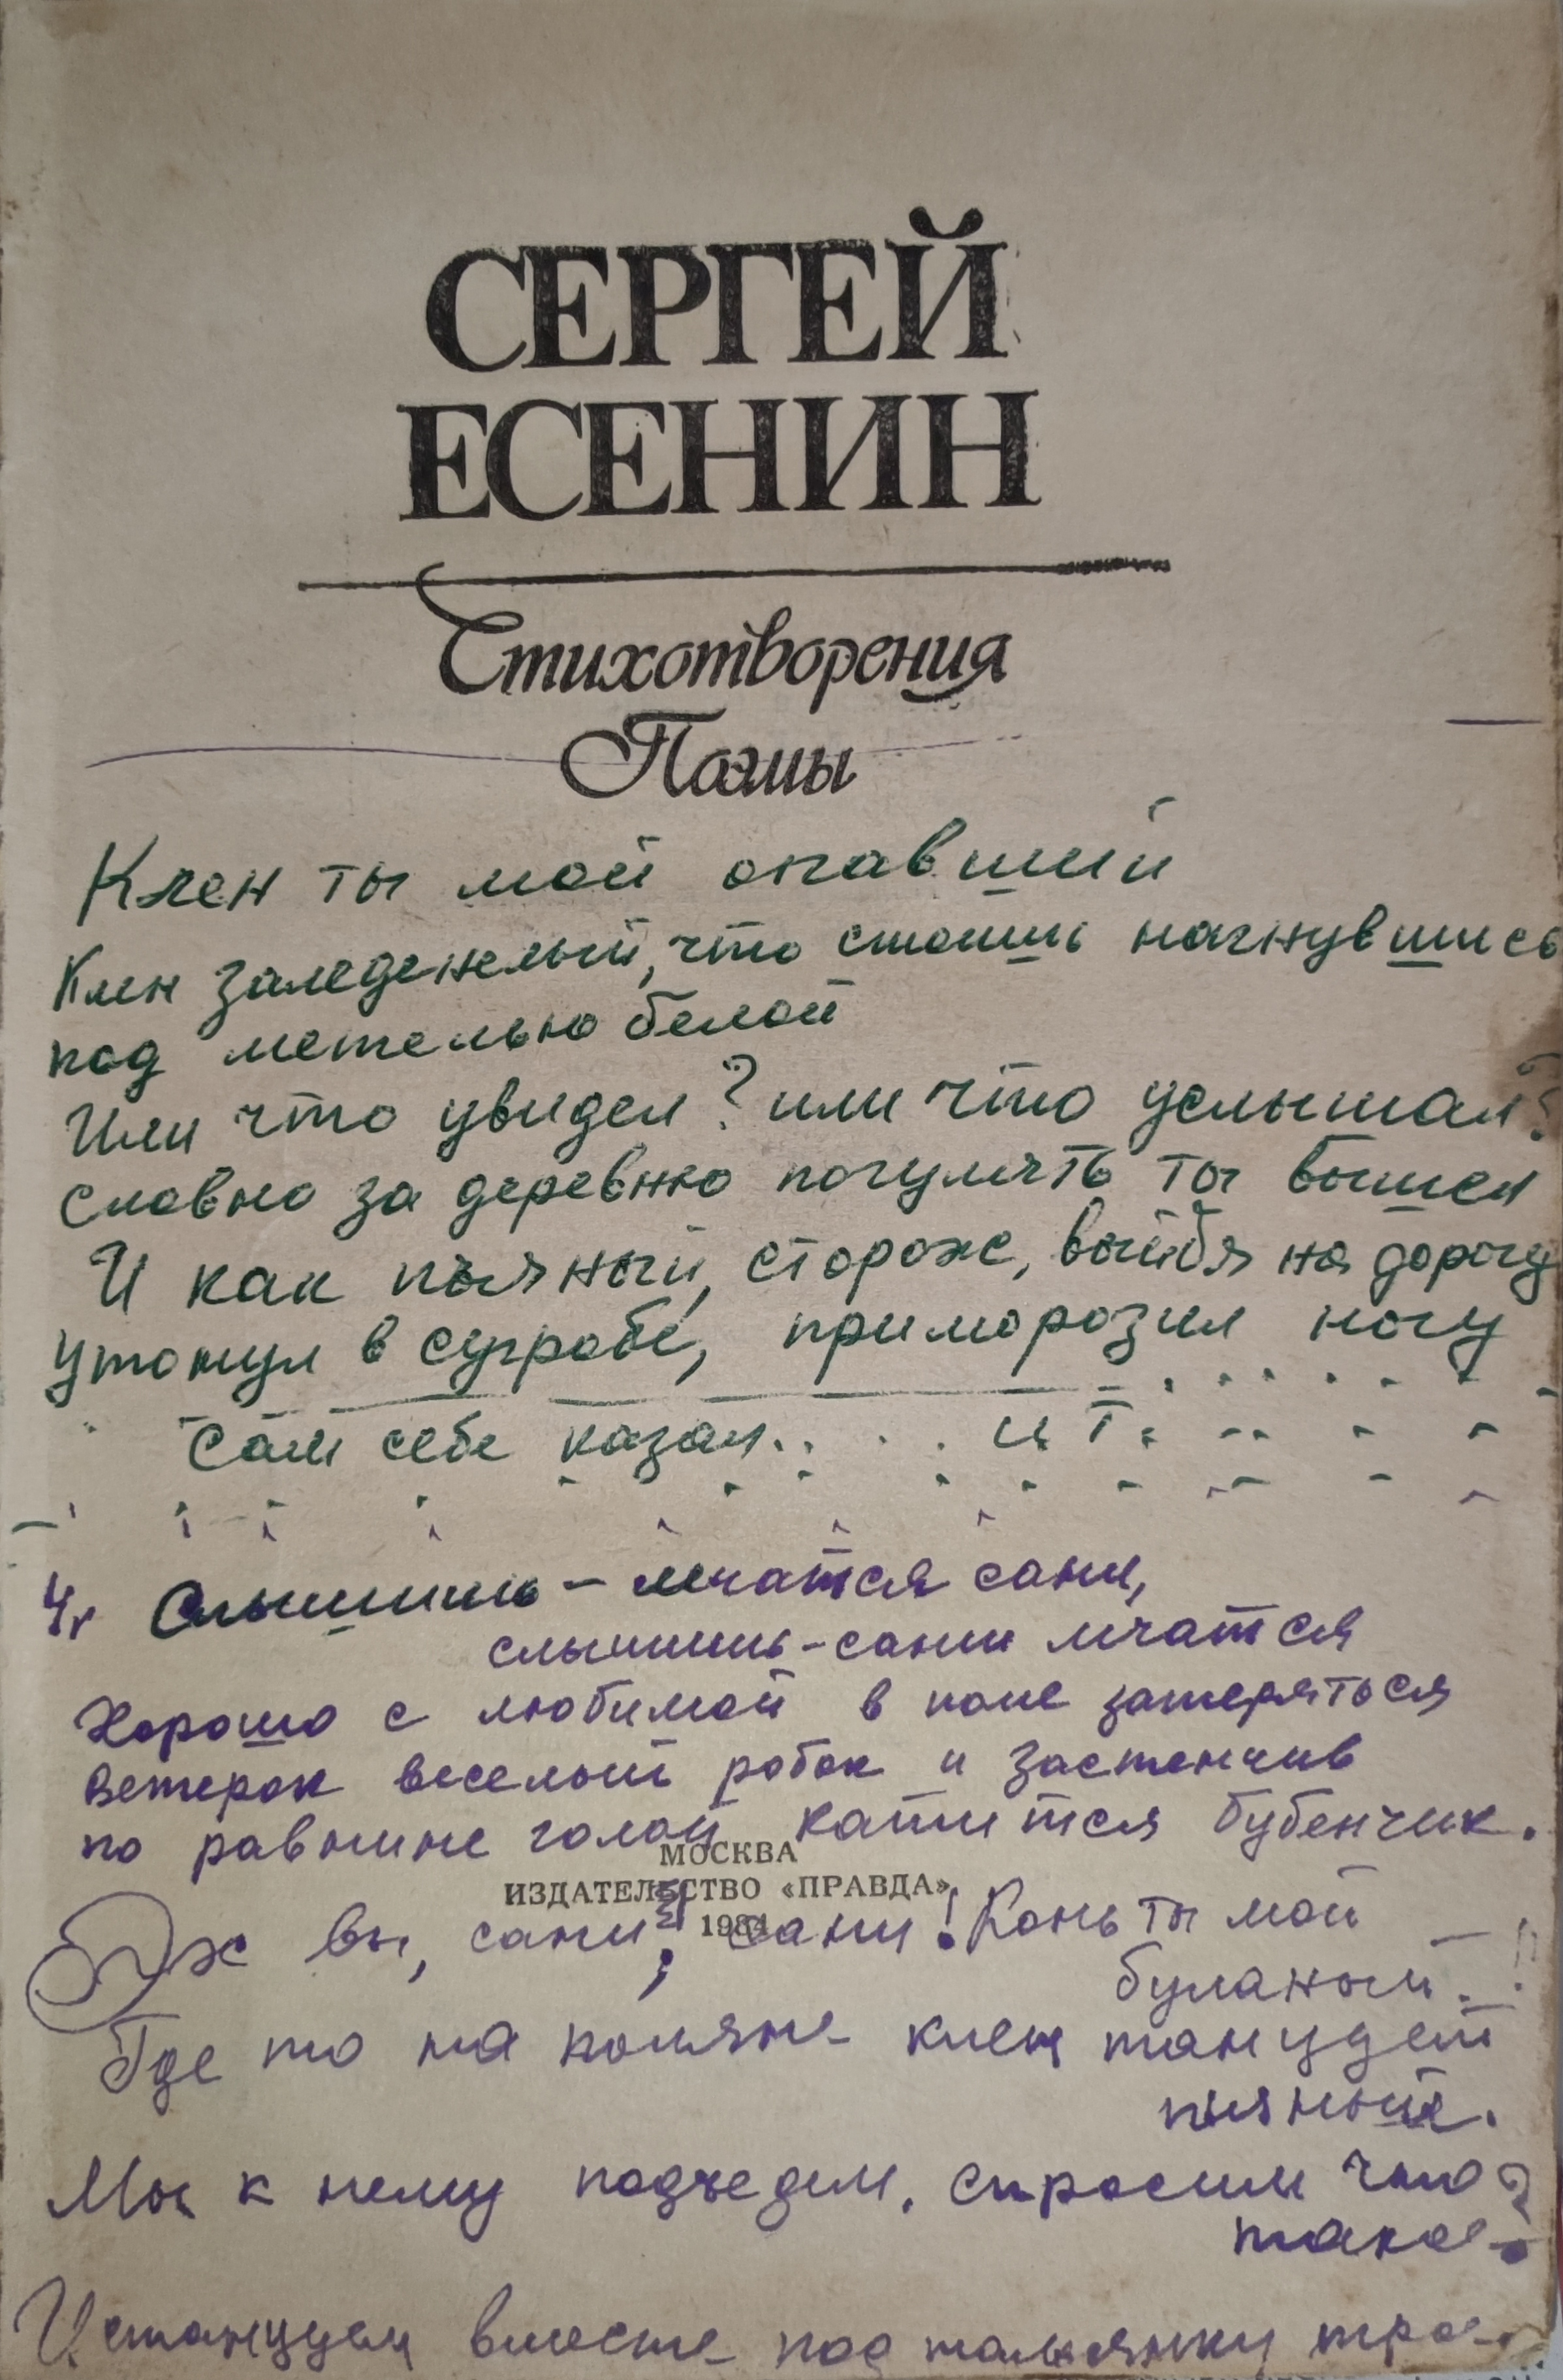 СЕРГЕЙ
ЕСЕНИН
Стихотворения
Поэмы
Клен ты мой опавший
Клен заледенелый, что стоишь нагнувшись
под метелью белой
Или что увидел? или что услышал?
словно за деревню погулять ты вышел
И как пьяный, сторож, выйдя на дорогу
утонул в сугробе, приморозил ногу
Сам себе казал..... и т.
Слышишь - мчатся сани,
слышишь - сани мчатся
Хорошо с любимой в поле затеряться
Ветерок веселый робок и застенчив
по равнине голой катится бубенчик.
МОСКВА
ИЗДАТЕЛЬСТВО «ПРАВДА»
1984
Эх вы, сани, сани! Конь ты мой
буланый.!
Где то на поляне клен танцует
пьяный.
Мы к нему подъедем, спросим что
такое?
И станцуем вместе под тальянку трое.